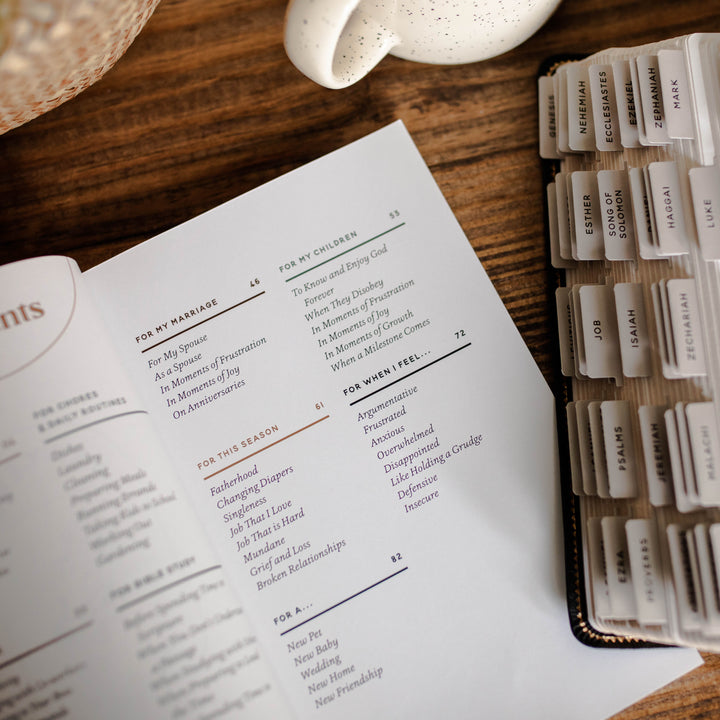 nts
FOR CHORES
& DAILY ROUTINES
Dishes
Laundry
Cleaning
Preparing Meals
Running Errands
Taking Kids to School
Working Out
Gardening
FOR BIBLE STUDY
Before Spending Time in
Scripture
FOR MY MARRIAGE 45
For My Spouse
As a Spouse
In Moments of Frustration
In Moments of Joy
On Anniversaries
FOR THIS SEASON 61
Fatherhood
Changing Diapers
Singleness
Job That I Love
Job That is Hard
Mundane
Grief and Loss
Broken Relationships
FOR A... 82
New Pet
New Baby
Wedding
New Home
New Friendship
FOR MY CHILDREN 55
To Know and Enjoy God
Forever
When They Disobey
In Moments of Frustration
In Moments of Joy
In Moments of Growth
When a Milestone Comes
FOR WHEN I FEEL... 72
Argumentative
Frustrated
Anxious
Overwhelmed
Disappointed
Like Holding a Grudge
Defensive
Insecure
GENESIS
NEHEMIAH
ECCLESIASTES
EZEKIEL
ZEPHANIAH
MARK
ESTHER
SONG OF
SOLOMON
DANIEL
HAGGAI
LUKE
JOB
ISAIAH
ZECHARIAH
PSALMS
JEREMIAH
MALACHI
EZRA
PROVERBS